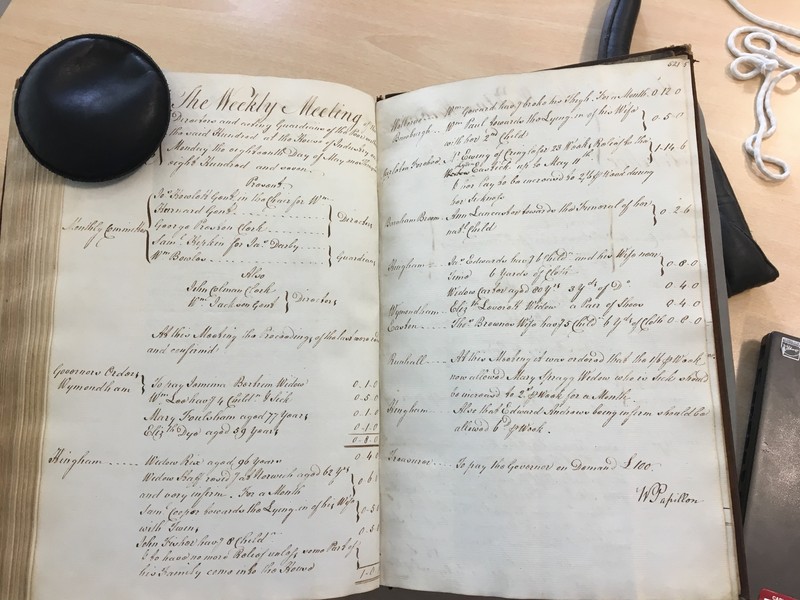 The Weekly Meeting of the
Directors and acting Guardians of the Poor
the said Hundred at the House of Industry
Monday the eighteenth Day of May
eight Hundred and seven
Present
Gent. in the Chair for Wm
Gent.
George Preston Clerk
Monthly Committee
Directors
Saml. Kipkin for Jno. Darby
Wm Bowles
Guardians
Also
John Colman Clerk
Wm. Jackson Gent
Directors
At this Meeting the Proceedings of the last were
and confirmed
Governors Orders
Wymondham
To pay Bertrem Widow 0.1.0
Wm Lee hav.g 4 Child.n & Sick 0.5.0
Mary Foulsham aged 77 Years 0.1.0
Eliz.th Dye aged 39 Years 0.1.0
0.8.0
Hingham Widow Rix aged 96 Years 0.4.0
Widow resid.g at Norwich aged 62 Yrs
and very infirm. For a Month 0.6
Saml. Cooper towards the Lying in of his Wife
with Twins 0.5
John Fisher hav.g 8 Child.n 0.5.0
& to have no more Relief unless some Part of
his Family come into the House
1.0
521
Wm. Goward hav.g broke his Thigh. For a Month 0.12.0
Bowburgh Wm Paul towards the Lying in of his Wife
with her 2nd Child 0.5.0
Carleton Forehoe Ewing of for 23 Weeks Relief to the
Widow up to May 11th 1.14.6
her pay to be increased to 2/6 P Week during
her Sickness
Barnham Broom Ann Lancaster towards the Funeral of her
natl. Child 0.2.6
Hingham Jno. Edwards hav.g 6 Child.n and his Wife near her
Time 6 Yards of Cloth 0.8.0
Widow Carter aged 80 Yrs 3 Yds of Do 0.4.0
Wymondham Eliz.th Widow a Pair of Shoes 0.4.0
Easton Thos. Browns Wife hav.g 5 Child.n 6 Yds of Cloth 0.8.0
Runhall At this Meeting it was ordered that the 1/6 P Week
now allowed Mary Spragg Widow who is Sick should
be increased to 2/ P Week for a Month
Hingham Also that Edward Andrews being infirm should be
allowed 6d P Week.
Treasurer To pay the Governor on Demand £100.
W Papillon